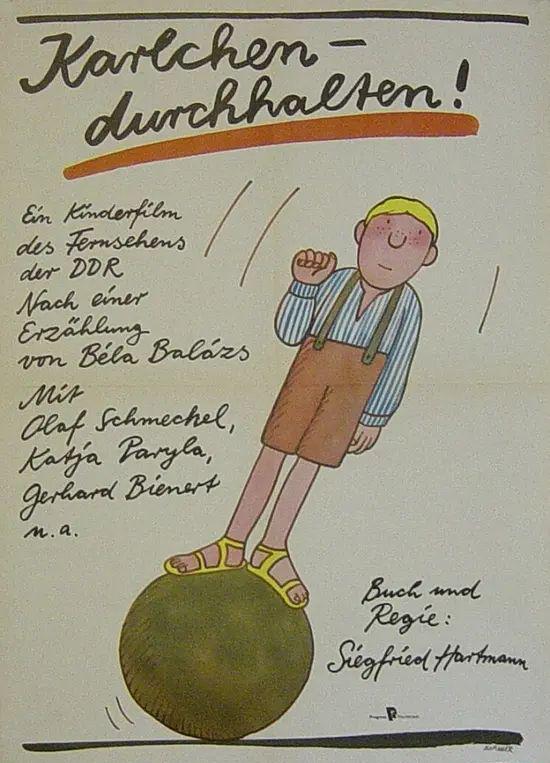 Karlchen –
durchhalten!
Ein Kinderfilm
des Fernsehens
der DDR
Nach einer
Erzählung
von Béla Balázs
Mit
Olaf Schmeckel,
Katja Paryla,
Gerhard Bienert
u.a.
Buch und
Regie:
Siegfried Hartmann
Progress